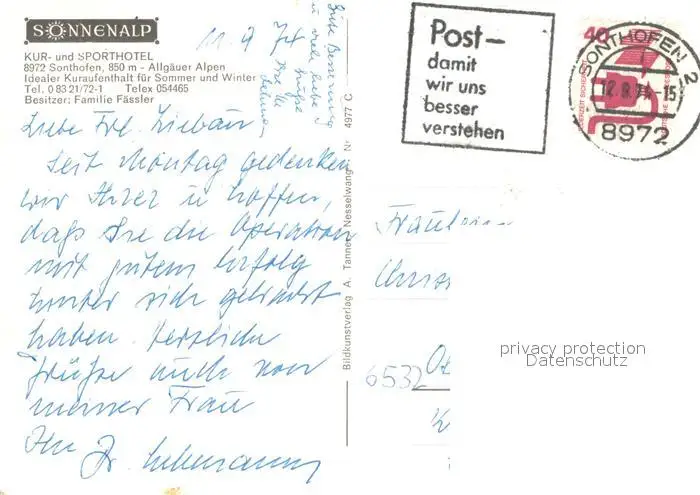 SONNENALP
KUR- und SPORTHOTEL
8972 Sonthofen, 850 m - Allgäuer Alpen
Idealer Kuraufenthalt für Sommer und Winter
Tel. 0 83 21/72-1 Telex 054465
Besitzer: Familie Fässler
Gute Besserung
u. viele liebe
Grüße
Liebe Frl.
Seit Montag gedenken
wir Ihrer u. hoffen,
daß Sie die Operation
mit gutem Erfolg
hinter sich gebracht
haben. Herzliche
Grüße auch von
meiner Frau
Ihr
Bildkunstverlag A. Tanner, Nesselwang Nº 4977 C
Post-
damit
wir uns
besser
verstehen
40
SONTHOFEN 2
-15
8972
Fräulein
6532
privacy protection
Datenschutz